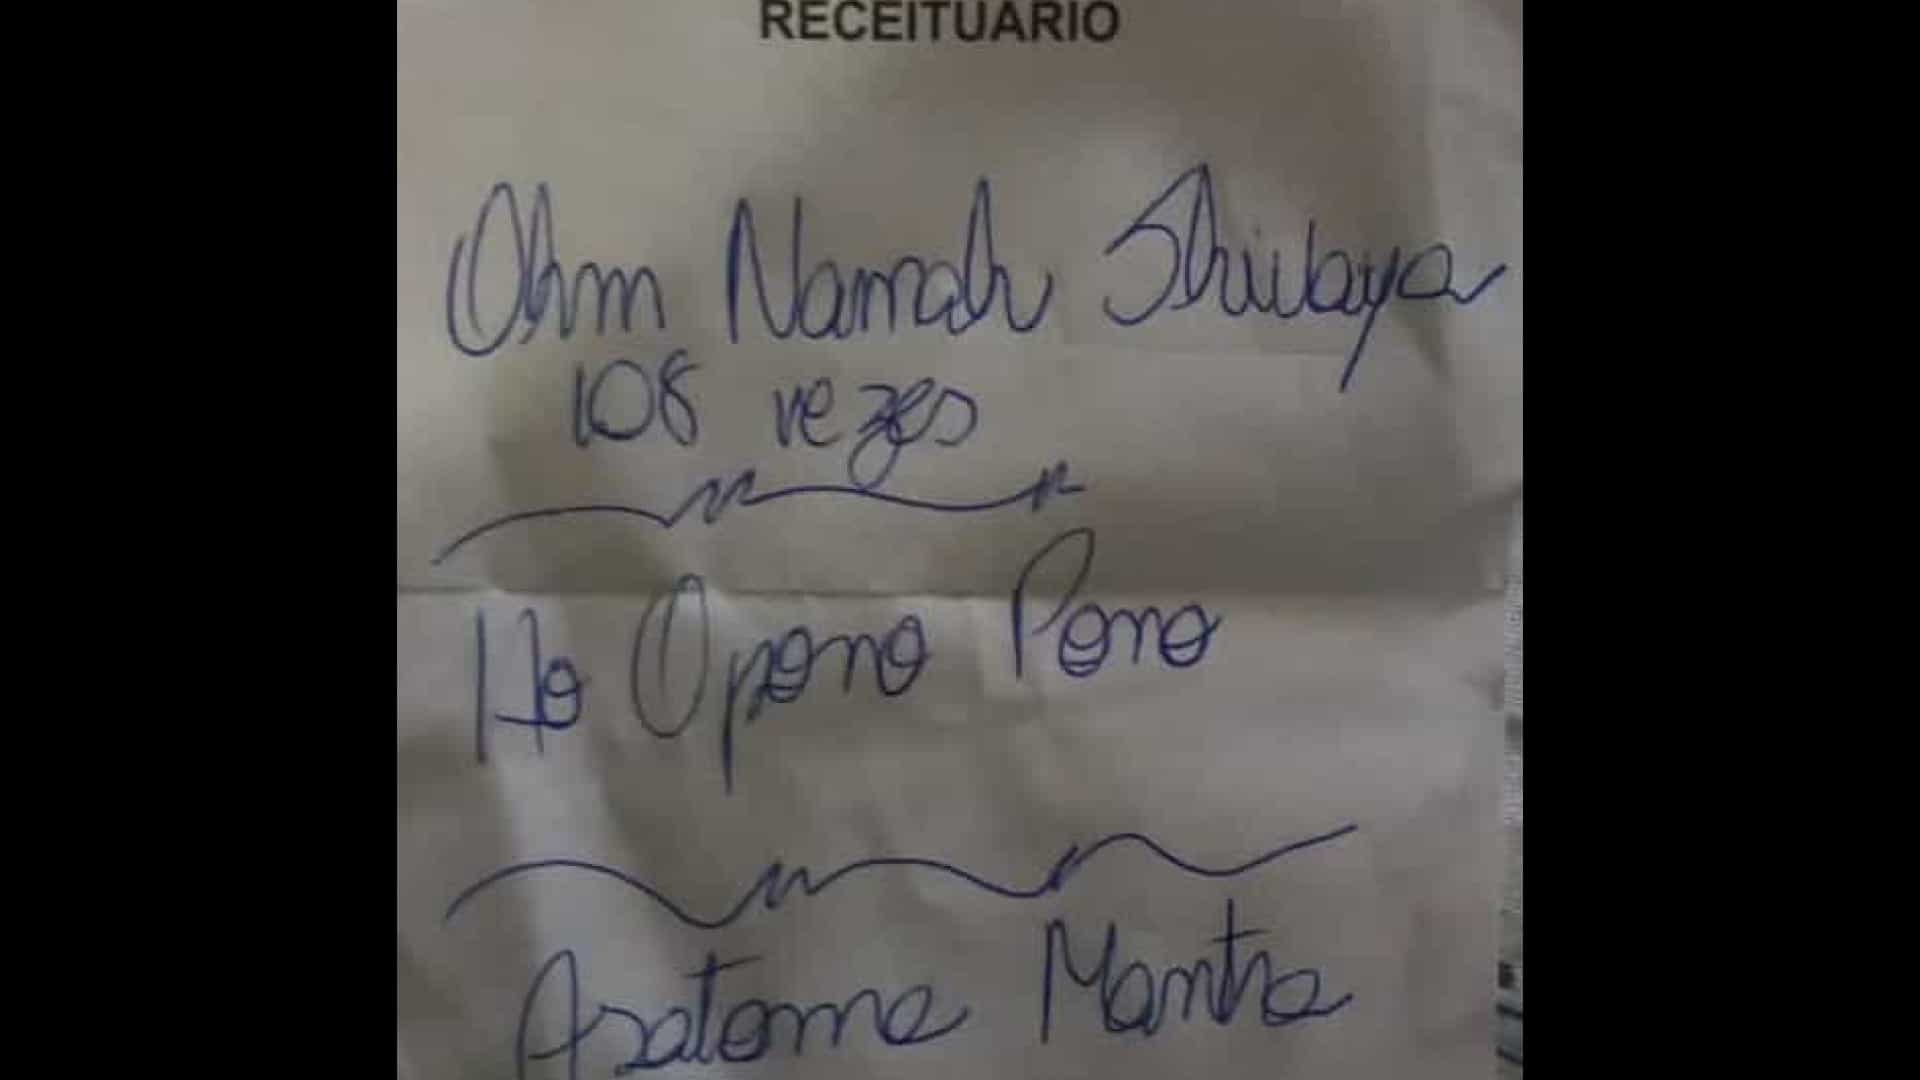 RECEITUÁRIO
Ohm Namah Shivaya
108 vezes
Ho Opono Pono
Asatoma Mantra